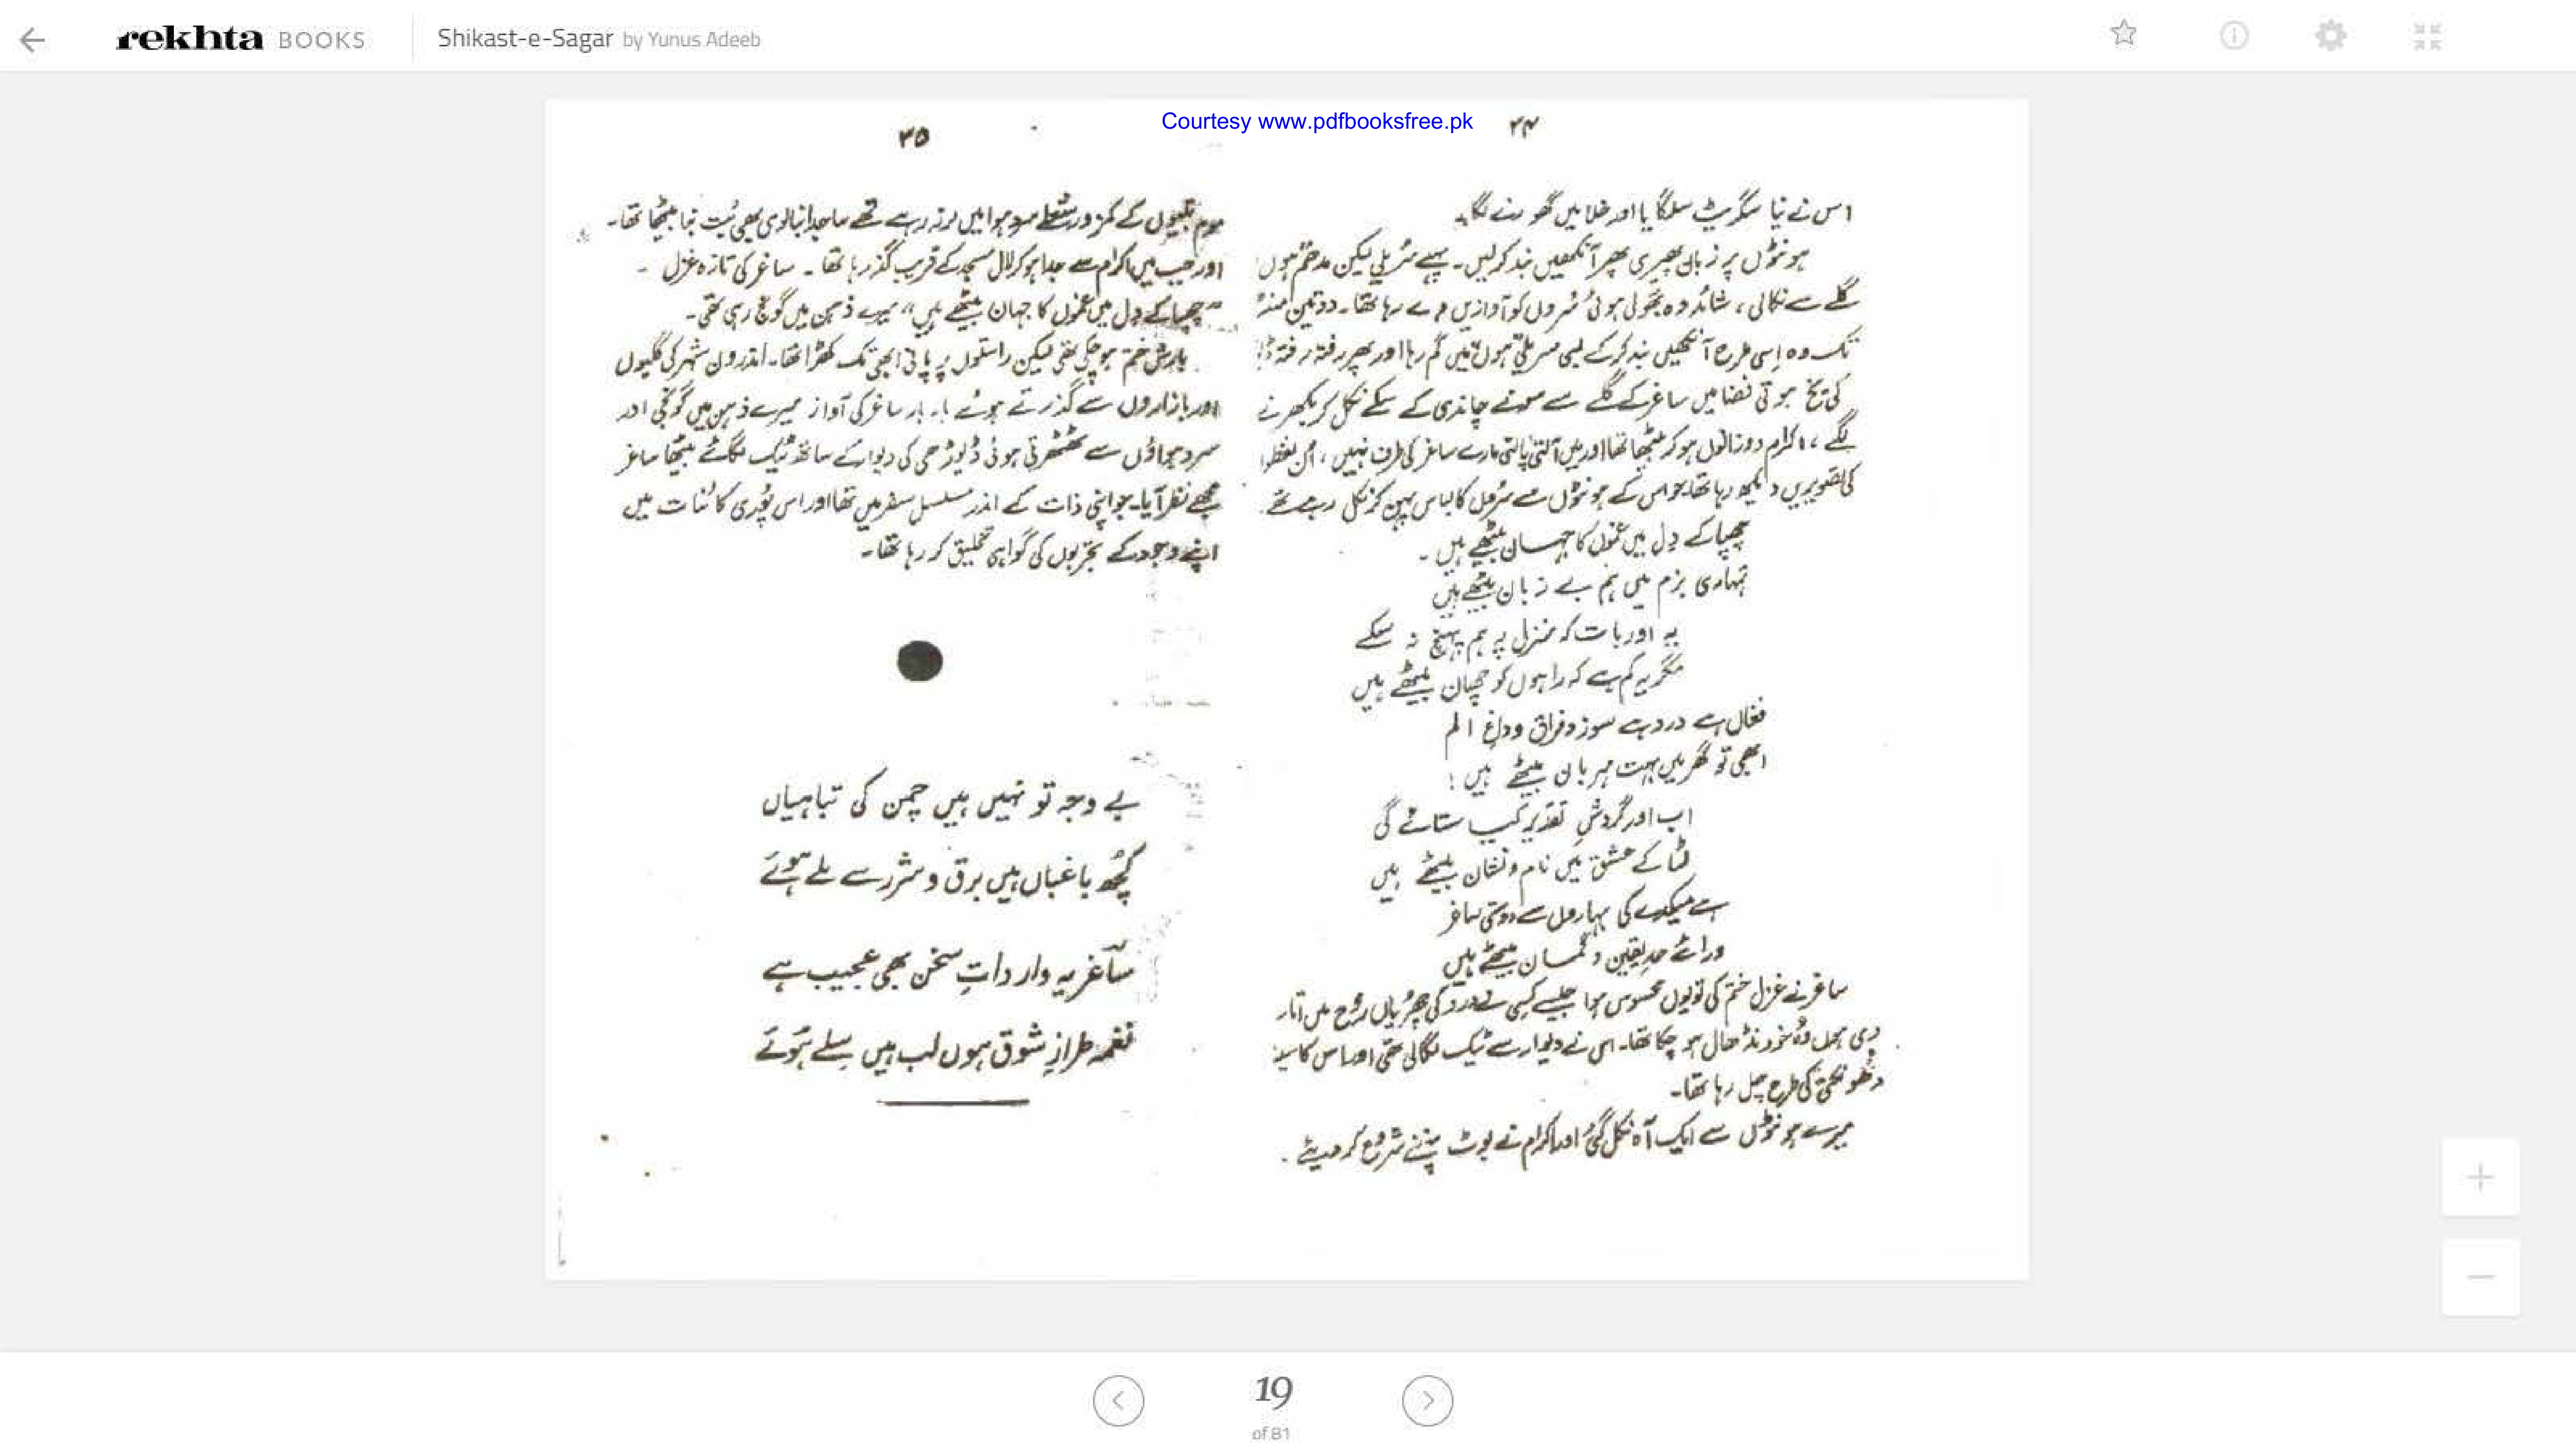 rekhta BOOKS
Shikast-e-Sagar by Yunus Adeeb
Courtesy www.pdfbooksfree.pk
۳۴
اس نے نیا سگریٹ سلگایا اور خلا میں گھورنے لگا۔
ہونٹوں پر زبان پھیری پھر آنکھیں بند کرلیں۔ پہلے سُریلی لیکن مدھم ہوں
گلے سے نکالی، شائد وہ بھولی ہوئی سُروں کو آوازیں دے رہا تھا۔ دو تین منٹ
تک وہ اسی طرح آنکھیں بند کرکے لمبی سریلی ہوں میں گم رہا اور پھر رفتہ رفتہ
کی یخ ہوتی فضا میں ساغر کے گلے سے سونے چاندی کے سکے نکل کر بکھرنے
لگے، اکرام دوزانوں ہو کر بیٹھا تھا اور میں آلتی پالتی مارے ساغر کی طرف نہیں، اُن لفظوں
کی تصویریں دیکھ رہا تھا جو اس کے ہونٹوں سے سُرمل کا لباس پہن کر نکل رہے تھے۔
چھپا کے دل میں غموں کا جہان بیٹھے ہیں۔
تمہاری بزم میں ہم بے زبان بیٹھے ہیں
یہ اور بات کہ منزل پہ ہم پہنچ نہ سکے
مگر یہ کم ہے کہ راہوں کو چھان بیٹھے ہیں
فغاں ہے درد ہے سوز و فراق و داغِ الم
ابھی تو گھر میں بہت مہربان بیٹھے ہیں!
اب اور گردشِ تقدیر کیا ستائے گی
لٹا کے عشق میں نام و نشان بیٹھے ہیں
ہے میکدے کی بہاروں سے دوستی ساغر
ورائے حدِ یقین و گمان بیٹھے ہیں
ساغر نے غزل ختم کی تو یوں محسوس ہوا جیسے کسی نے درد کی چھریاں روح میں اتار
دی ہوں وہ خود نڈھال ہو چکا تھا۔ اس نے دیوار سے ٹیک لگالی تھی اور اس کا سینہ
دھونکنی کی طرح چل رہا تھا۔
میرے ہونٹوں سے ایک آہ نکل گئی اور اکرام نے بوٹ پہننے شروع کر دیئے۔
۳۵
موم بتیوں کے کمزور شعلے سرد ہوا میں لرز رہے تھے ساجد انبالوی بھی بُت بنا بیٹھا تھا۔
اور جب میں اکرام سے جدا ہو کر لال مسجد کے قریب گذر رہا تھا۔ ساغر کی تازہ غزل۔
"چھپا کے دل میں غموں کا جہان بیٹھے ہیں" میرے ذہن میں گونج رہی تھی۔
بارش ختم ہو چکی تھی لیکن راستوں پر پانی ابھی تک کھڑا تھا۔ اندرون شہر کی گلیوں
اور بازاروں سے گذرتے ہوئے بار بار ساغر کی آواز میرے ذہن میں گونجی اور
سرد ہواؤں سے ٹھٹھرتی ہوئی ڈیوڑھی کی دیوار کے ساتھ ٹیک لگائے بیٹھا ساغر
مجھے نظر آیا۔ جو اپنی ذات کے اندر مسلسل سفر میں تھا اور اس پوری کائنات میں
اپنے وجود کے تجربوں کی گواہی تخلیق کر رہا تھا۔
بے وجہ تو نہیں ہیں چمن کی تباہیاں
کچھ باغباں ہیں برق و شرر سے ملے ہوئے
ساغر یہ وارداتِ سخن بھی عجیب ہے
نغمہ طرازِ شوق ہوں لب ہیں سِلے ہوئے
19
of 81